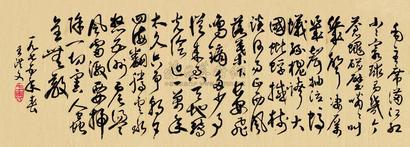 毛主席满江红
小小寰球有几个
苍蝇碰壁嗡嗡叫
几声凄厉
几声抽泣蚂
蚁缘槐夸大
国蚍蜉撼树
谈何易正西风
落叶下长安飞
鸣镝多少事
从来急天地转
光阴迫一万年
太久只争朝夕
四海翻腾云水
怒五洲震荡
风雷激要扫
除一切害人虫
全无敌